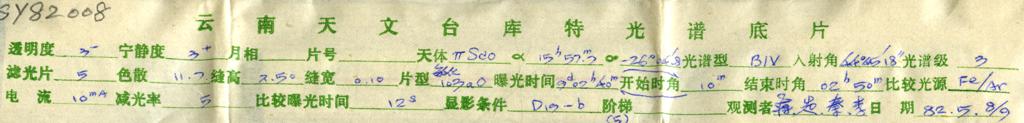 SY82008
云南天文台库特光谱底片
透明度 3⁻ 宁静度 3⁺ 月相 片号 天体 π Sco α 15ʰ57ᵐ -26° 光谱型 B1V 入射角 光谱级 3
滤光片 5 色散 11.7 缝高 2.50 缝宽 0.10 片型 103aO 曝光时间 开始时角 10ᵐ 结束时角 02ʰ50ᵐ 比较光源 Fe/Ar
电流 10ᵐᴬ 减光率 5 比较曝光时间 12ˢ 显影条件 D19-b 阶梯 (5) 观测者 日期 82.5.8/9